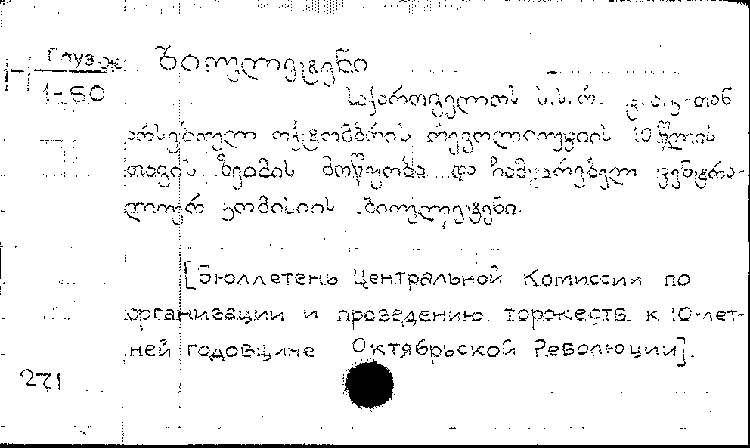 Глуз.ж ბიულეტენი
1-60
საქართველოს ს.ს.რ. ც.ა.კ-თან
არსებულ ოქტომბრის რევოლიუციის 10 წლის
თავის ზეიმის მოწყობა და ჩამტარებელ ცენტრა-
ლიურ კომისიის ბიულეტენი.
[Бюллетень Центральной Комиссии по
организации и проведению торжеств к 10-лет-
ней годовщине Октябрьской Революции].
271